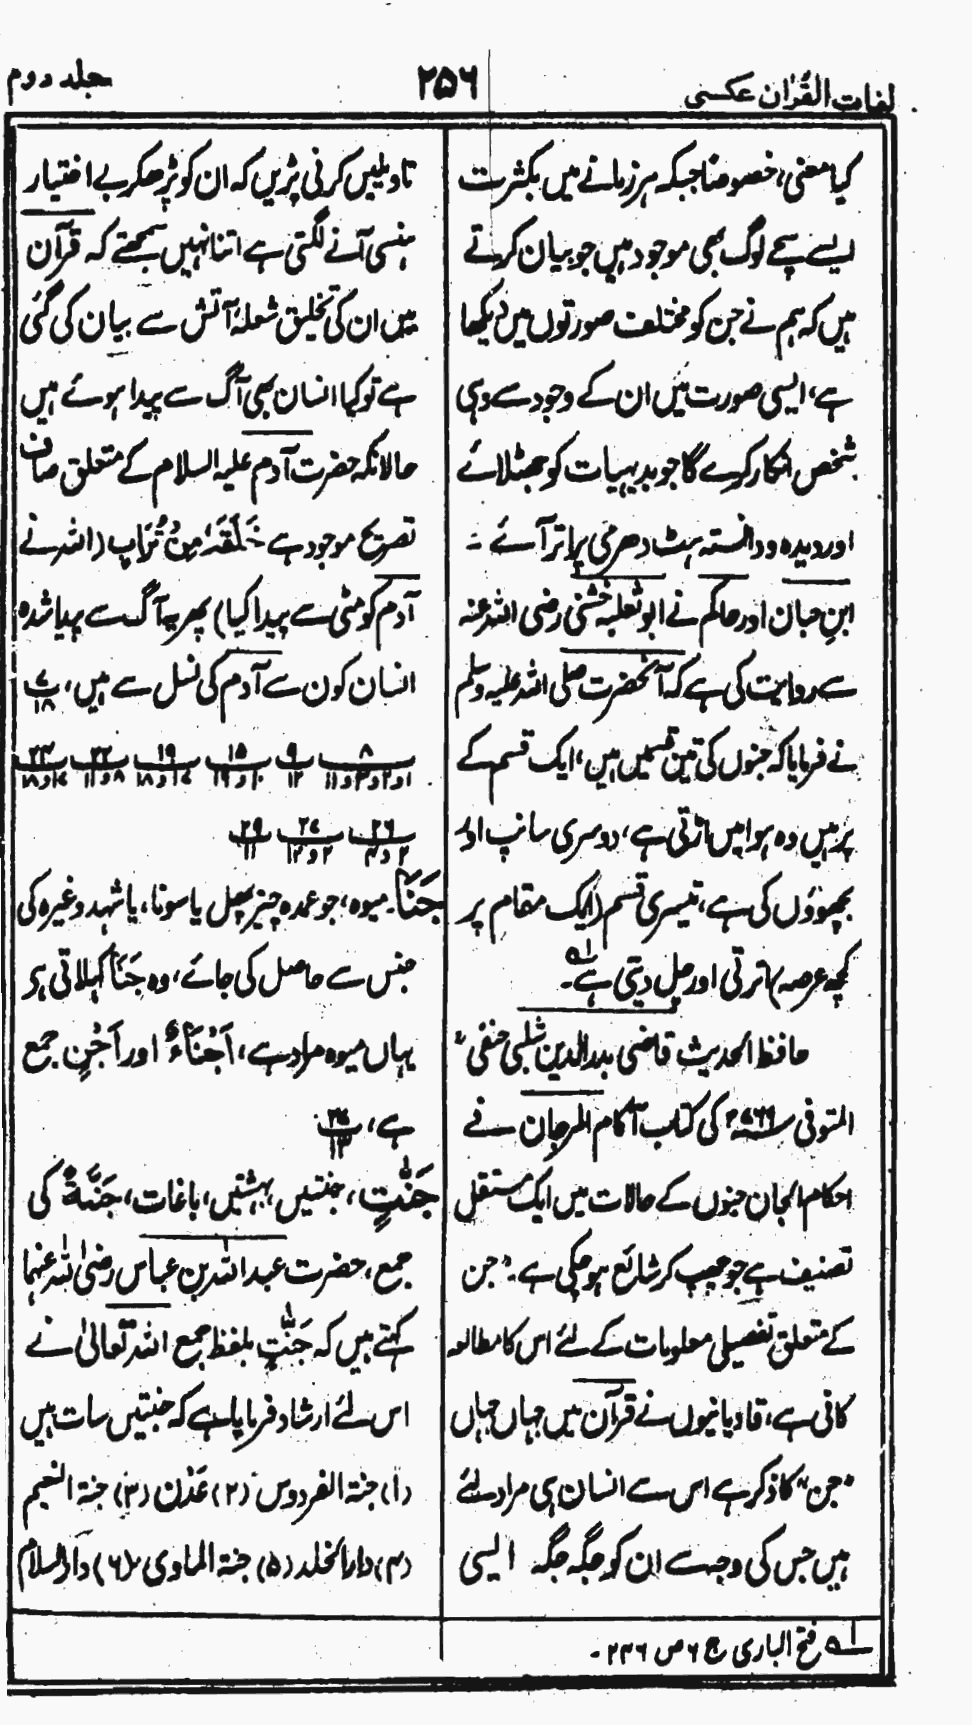 لغات القُرٰان عکسی
۲۵۶
جلد دوم
کیا معنی، خصوصًا جبکہ ہر زمانے میں بکثرت
ایسے سچے لوگ بھی موجود ہیں جو بیان کرتے
ہیں کہ ہم نے جن کو مختلف صورتوں میں دیکھا
ہے، ایسی صورت میں ان کے وجود سے وہی
شخص انکار کرے گا جو بدیہیات کو جھٹلائے
اور دیدہ و دانستہ ہٹ دھرمی پر اتر آئے ۔
ابنِ حبان اور حاکم نے ابو ثعلبہ خشنی رضی اللہ عنہ
سے روایت کی ہے کہ آنحضرت صلی اللہ علیہ وسلم
نے فرمایا کہ جنوں کی تین قسمیں ہیں، ایک قسم کے
پر ہیں وہ ہوا میں اڑتی ہے، دوسری سانپ اور
بچھوؤں کی ہے، تیسری قسم (ایک مقام پر
کچھ عرصہ) اترتی اور چل دیتی ہے۔ لہ
حافظ الحدیث قاضی بدرالدین شبلی حنفی
المتوفی ۷۶۹ھ کی کتاب آکام المرجان فے
احکام الجان جنوں کے حالات میں ایک مستقل
تصنیف ہے جو چھپ کر شائع ہو چکی ہے۔ "جن
کے متعلق تفصیلی معلومات کے لئے اس کا مطالعہ
کافی ہے، قادیانیوں نے قرآن میں جہاں جہاں
"جن" کا ذکر ہے اس سے انسان ہی مراد لئے
ہیں جس کی وجہ سے ان کو جگہ جگہ ایسی
تاویلیں کرنی پڑیں کہ ان کو پڑھکر بے اختیار
ہنسی آنے لگتی ہے اتنا نہیں سمجھتے کہ قرآن
میں ان کی تخلیق شعلۂ آتش سے بیان کی گئی
ہے تو کیا انسان بھی آگ سے پیدا ہوئے ہیں
حالانکہ حضرت آدم علیہ السلام کے متعلق صاف
تصریح موجود ہے خَلَقَہٗ مِنْ تُرَابٍ (اللہ نے
آدم کو مٹی سے پیدا کیا) پھر یہ آگ سے پیدا شدہ
انسان کون سے آدم کی نسل سے ہیں، ۷ ۱۸
۸ ۱و۲و۳و۱۱ ۹ ۱۲ ۱۵ ۲۰و۱۹ ۱۹ ۱۷و۱۸ ۲۲ ۸و۱۱ ۲۳ ۱۷و۱۸
۲۶ ۲و۴ ۲۷ ۲و۱۲ ۲۹ ۱۱
جَنَا۔ میوہ، جو عمدہ چیز پھل یا سونا، یا شہد وغیرہ کی
جنس سے حاصل کی جائے، وہ جَنَا کہلاتی ہر
یہاں میوہ مراد ہے، اَجْنَاءٌ اور اَجْنٍ جمع
ہے، ۲۷ ۱۳
جَنّٰتٍ، جنتیں بہشتیں، باغات، جَنَّۃٌ کی
جمع، حضرت عبداللہ بن عباس رضی اللہ عنہما
کہتے ہیں کہ جَنّٰتٍ بلفظ جمع اللہ تعالیٰ نے
اس لئے ارشاد فرمایا ہے کہ جنتیں سات ہیں
(۱) جنۃ الفردوس (۲) عَدْن (۳) جنۃ النعیم
(۴) دارالخلد (۵) جنۃ الماوی (۶) دارالسلام
لہ فتح الباری ج ۶ ص ۲۴۶ ۔